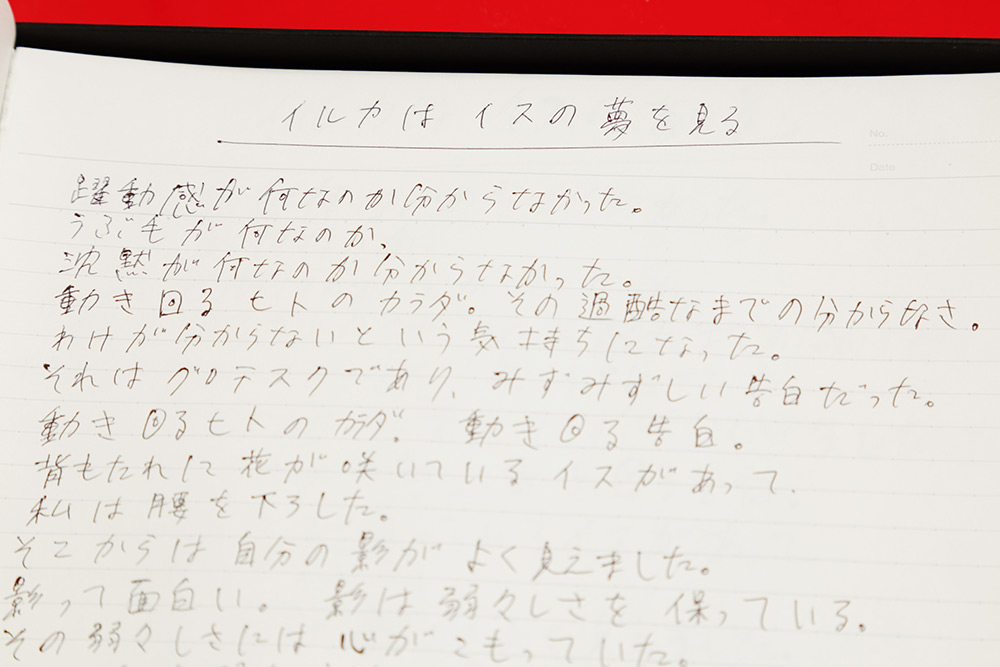 イルカは イスの夢を見る
No.
Date
躍動感が何なのか分からなかった。
うぶ毛が何なのか、
沈黙が何なのか分からなかった。
動き回るヒトのカラダ。その過酷なまでの分からなさ。
わけが分からないという気持ちになった。
それはグロテスクであり、みずみずしい告白だった。
動き回るヒトのカラダ。 動き回る告白。
背もたれに花が咲いているイスがあって、
私は腰を下ろした。
そこからは自分の影がよく見えました。
影って面白い。 影は弱々しさを保っている。
その弱々しさには心がこもっていた。